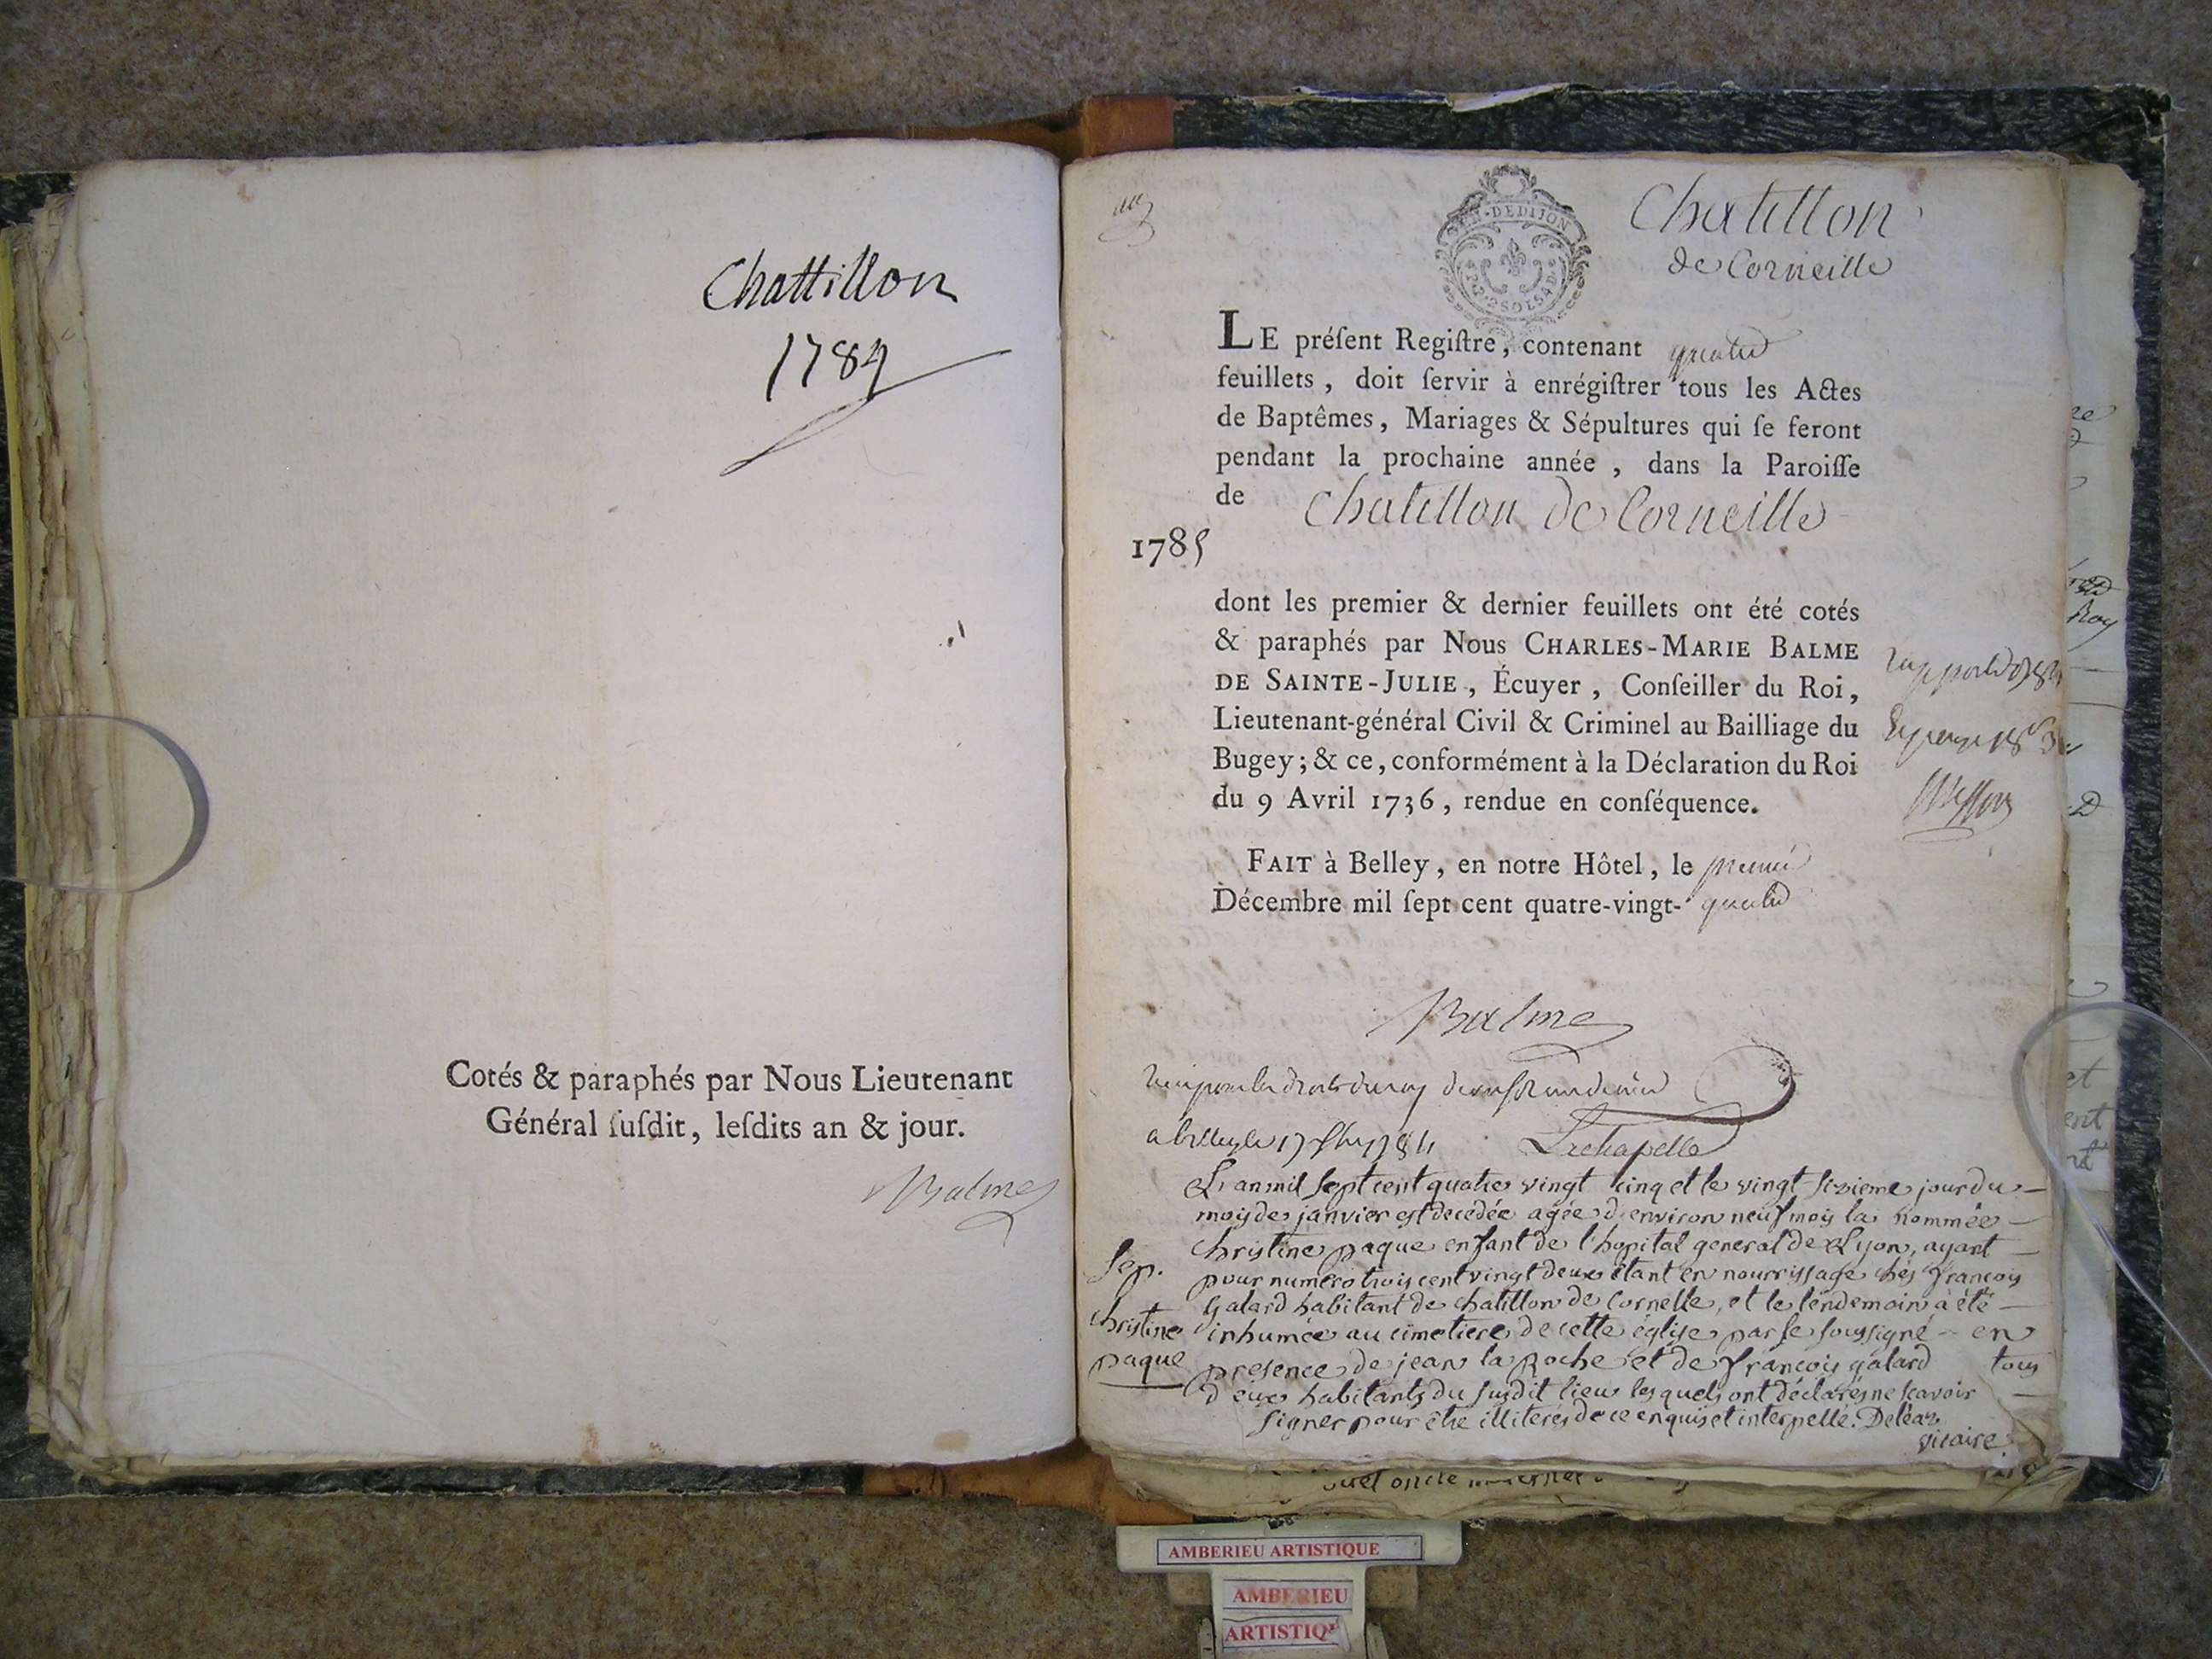 Chattillon
1784
Cotés & paraphés par Nous Lieutenant
Général ſuſdit, leſdits an & jour.
Balme
GEN·DE DIJON
2 SOLS 4 D
Chatillon
de Corneille
LE préſent Regiſtre, contenant quatre
feuillets, doit ſervir à enrégiſtrer tous les Actes
de Baptêmes, Mariages & Sépultures qui ſe feront
pendant la prochaine année, dans la Paroiſſe
de Chatillon de Corneille
1785
dont les premier & dernier feuillets ont été cotés
& paraphés par Nous CHARLES-MARIE BALME
DE SAINTE-JULIE, Écuyer, Conſeiller du Roi,
Lieutenant-général Civil & Criminel au Bailliage du
Bugey; & ce, conformément à la Déclaration du Roi
du 9 Avril 1736, rendue en conſéquence.
FAIT à Belley, en notre Hôtel, le premier
Décembre mil ſept cent quatre-vingt-quatre
Balme
a belley le 17 1784 Lachapelle
L'an mil sept cent quatre vingt cinq et le vingt sixieme jour du
mois de janvier est decedée agée d'environ neuf mois la nommée
christine paque enfant de l'hopital general de Lyon, ayant
pour numero trois cent vingt deux étant en nourrissage chés françois
galard habitant de chatillon de Cornelle, et le lendemain à été
inhumée au cimetiere de cette église par le soussigné en
presence de jean la Roche et de françois galard tous
deux habitants du susdit lieu lesquels ont déclarés ne scavoir
signer pour être illiterés de ce enquis et interpellé. Deléaz
vicaire
Sep.
christine
paque
AMBERIEU ARTISTIQUE
AMBERIEU
ARTISTIQ